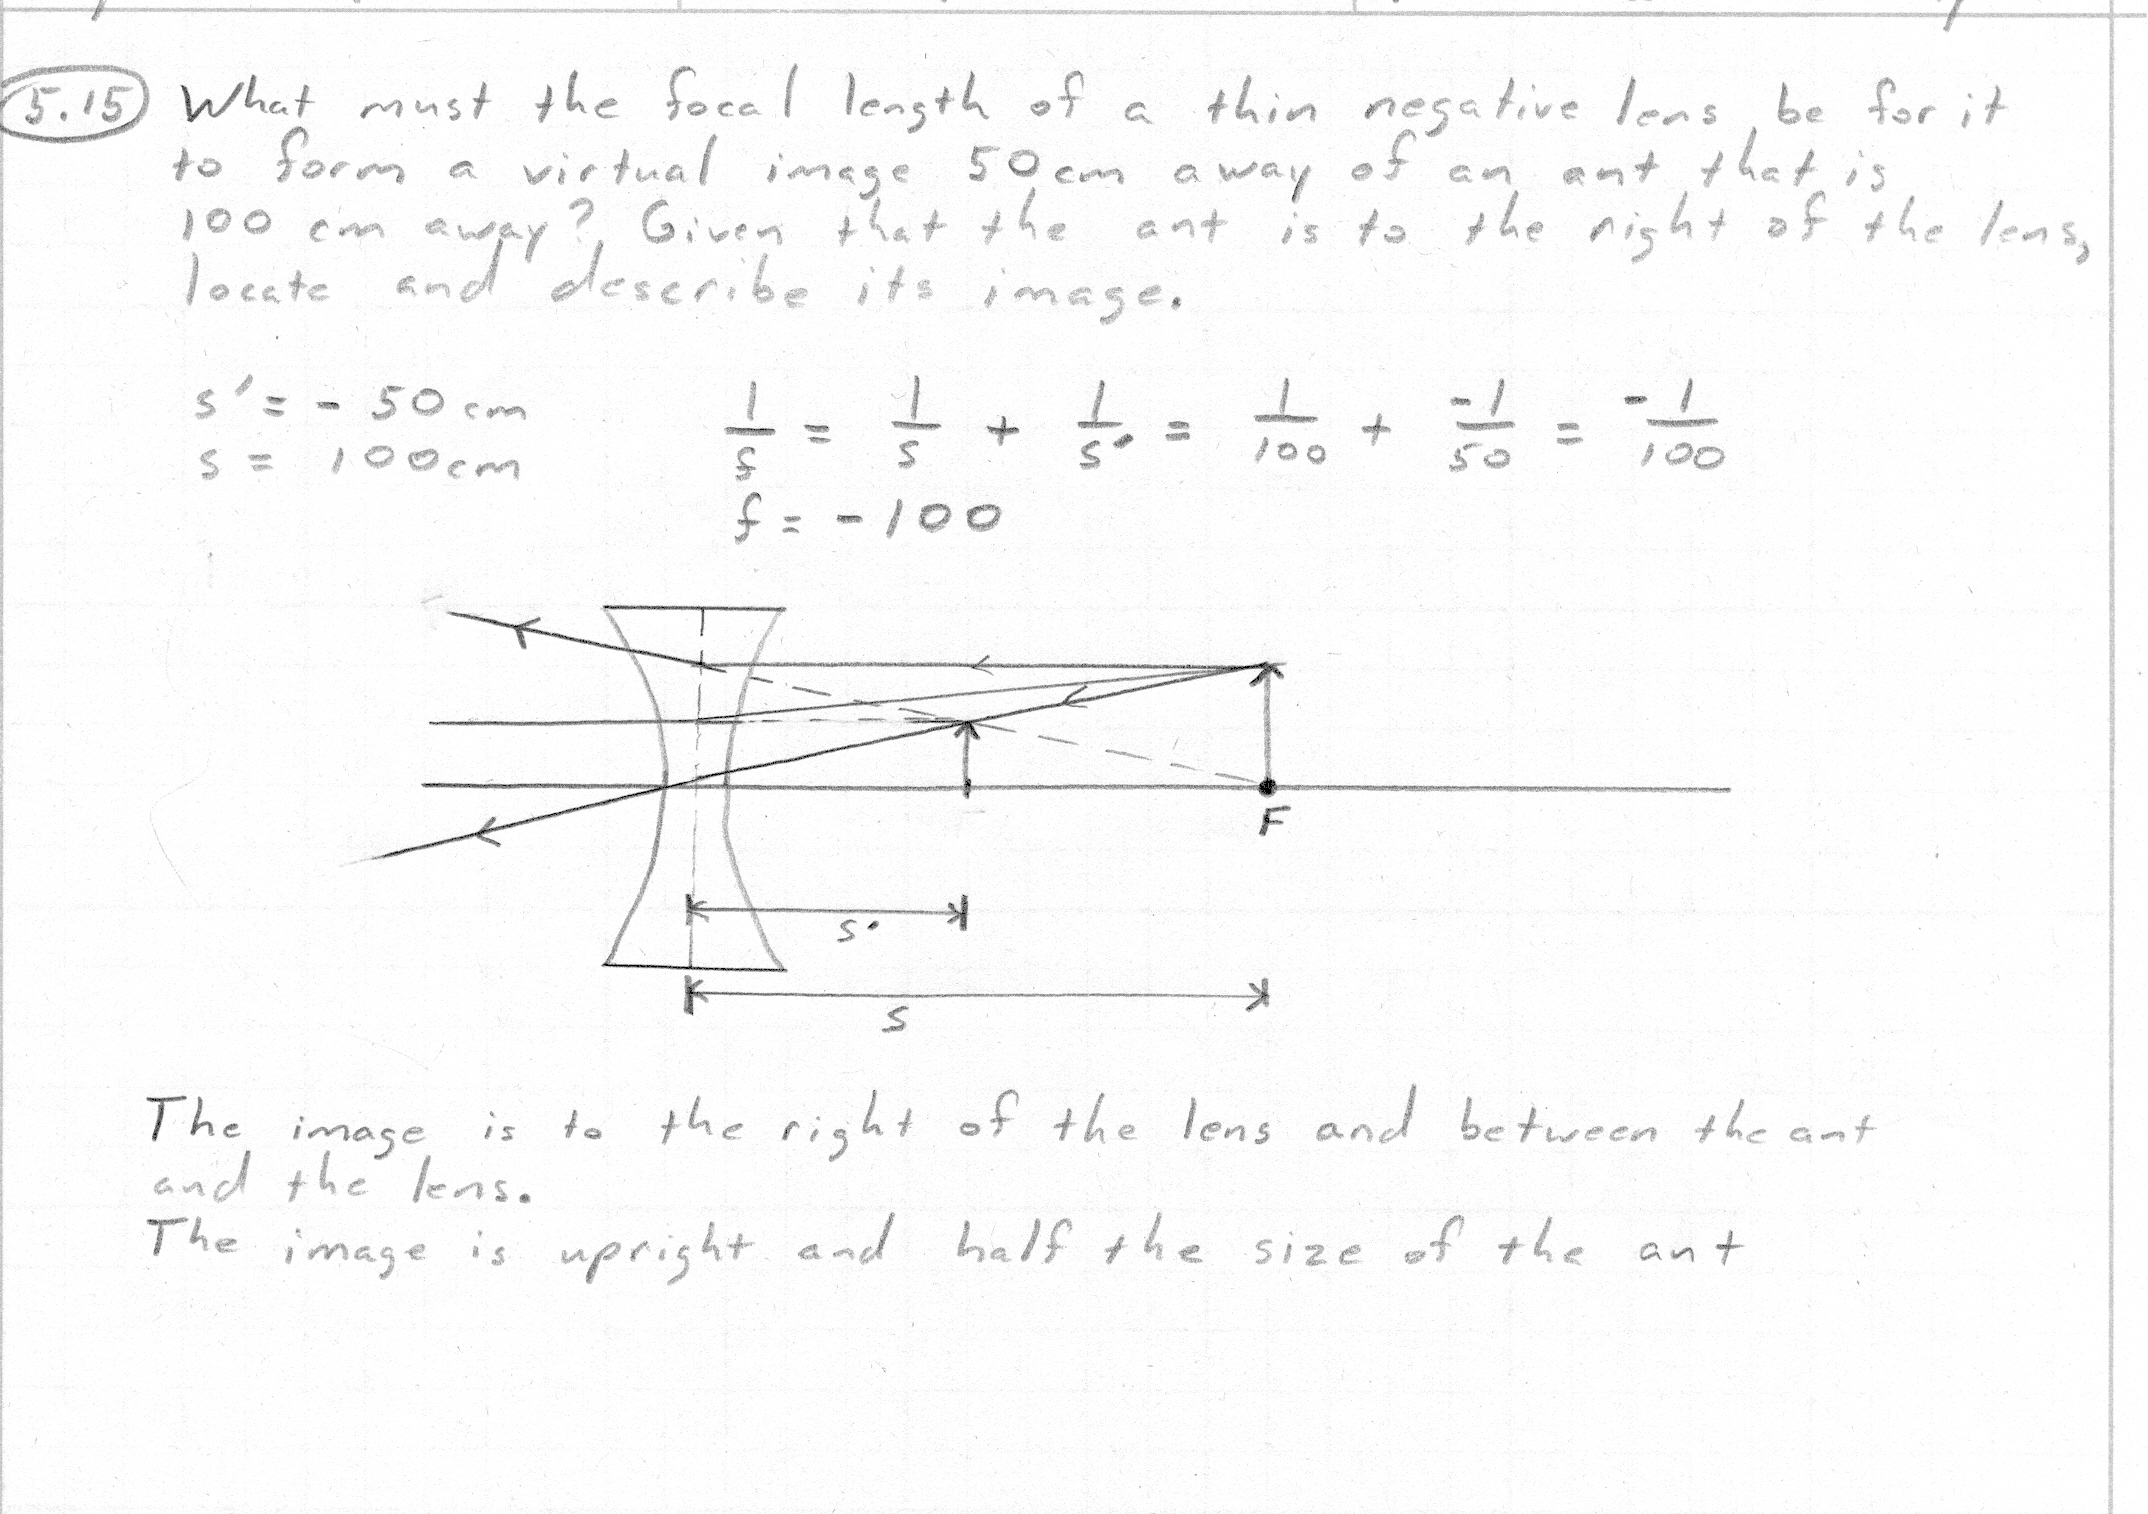 5.15 What must the focal length of a thin negative lens be for it
to form a virtual image 50cm away of an ant that is
100 cm away? Given that the ant is to the right of the lens,
locate and describe its image.
s' = - 50 cm
s = 100cm
1/f = 1/s + 1/s' = 1/100 + -1/50 = -1/100
f = - 100
F
s'
s
The image is to the right of the lens and between the ant
and the lens.
The image is upright and half the size of the ant